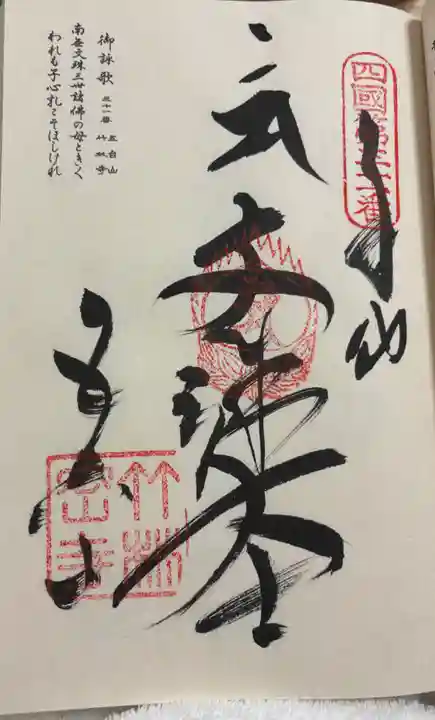 四國第三十一番
文殊大士
五台山
竹林
密寺
御詠歌 三十一番 五台山 竹林寺
南無文殊三世諸佛の母ときく
われも子心乳こそほしけれ